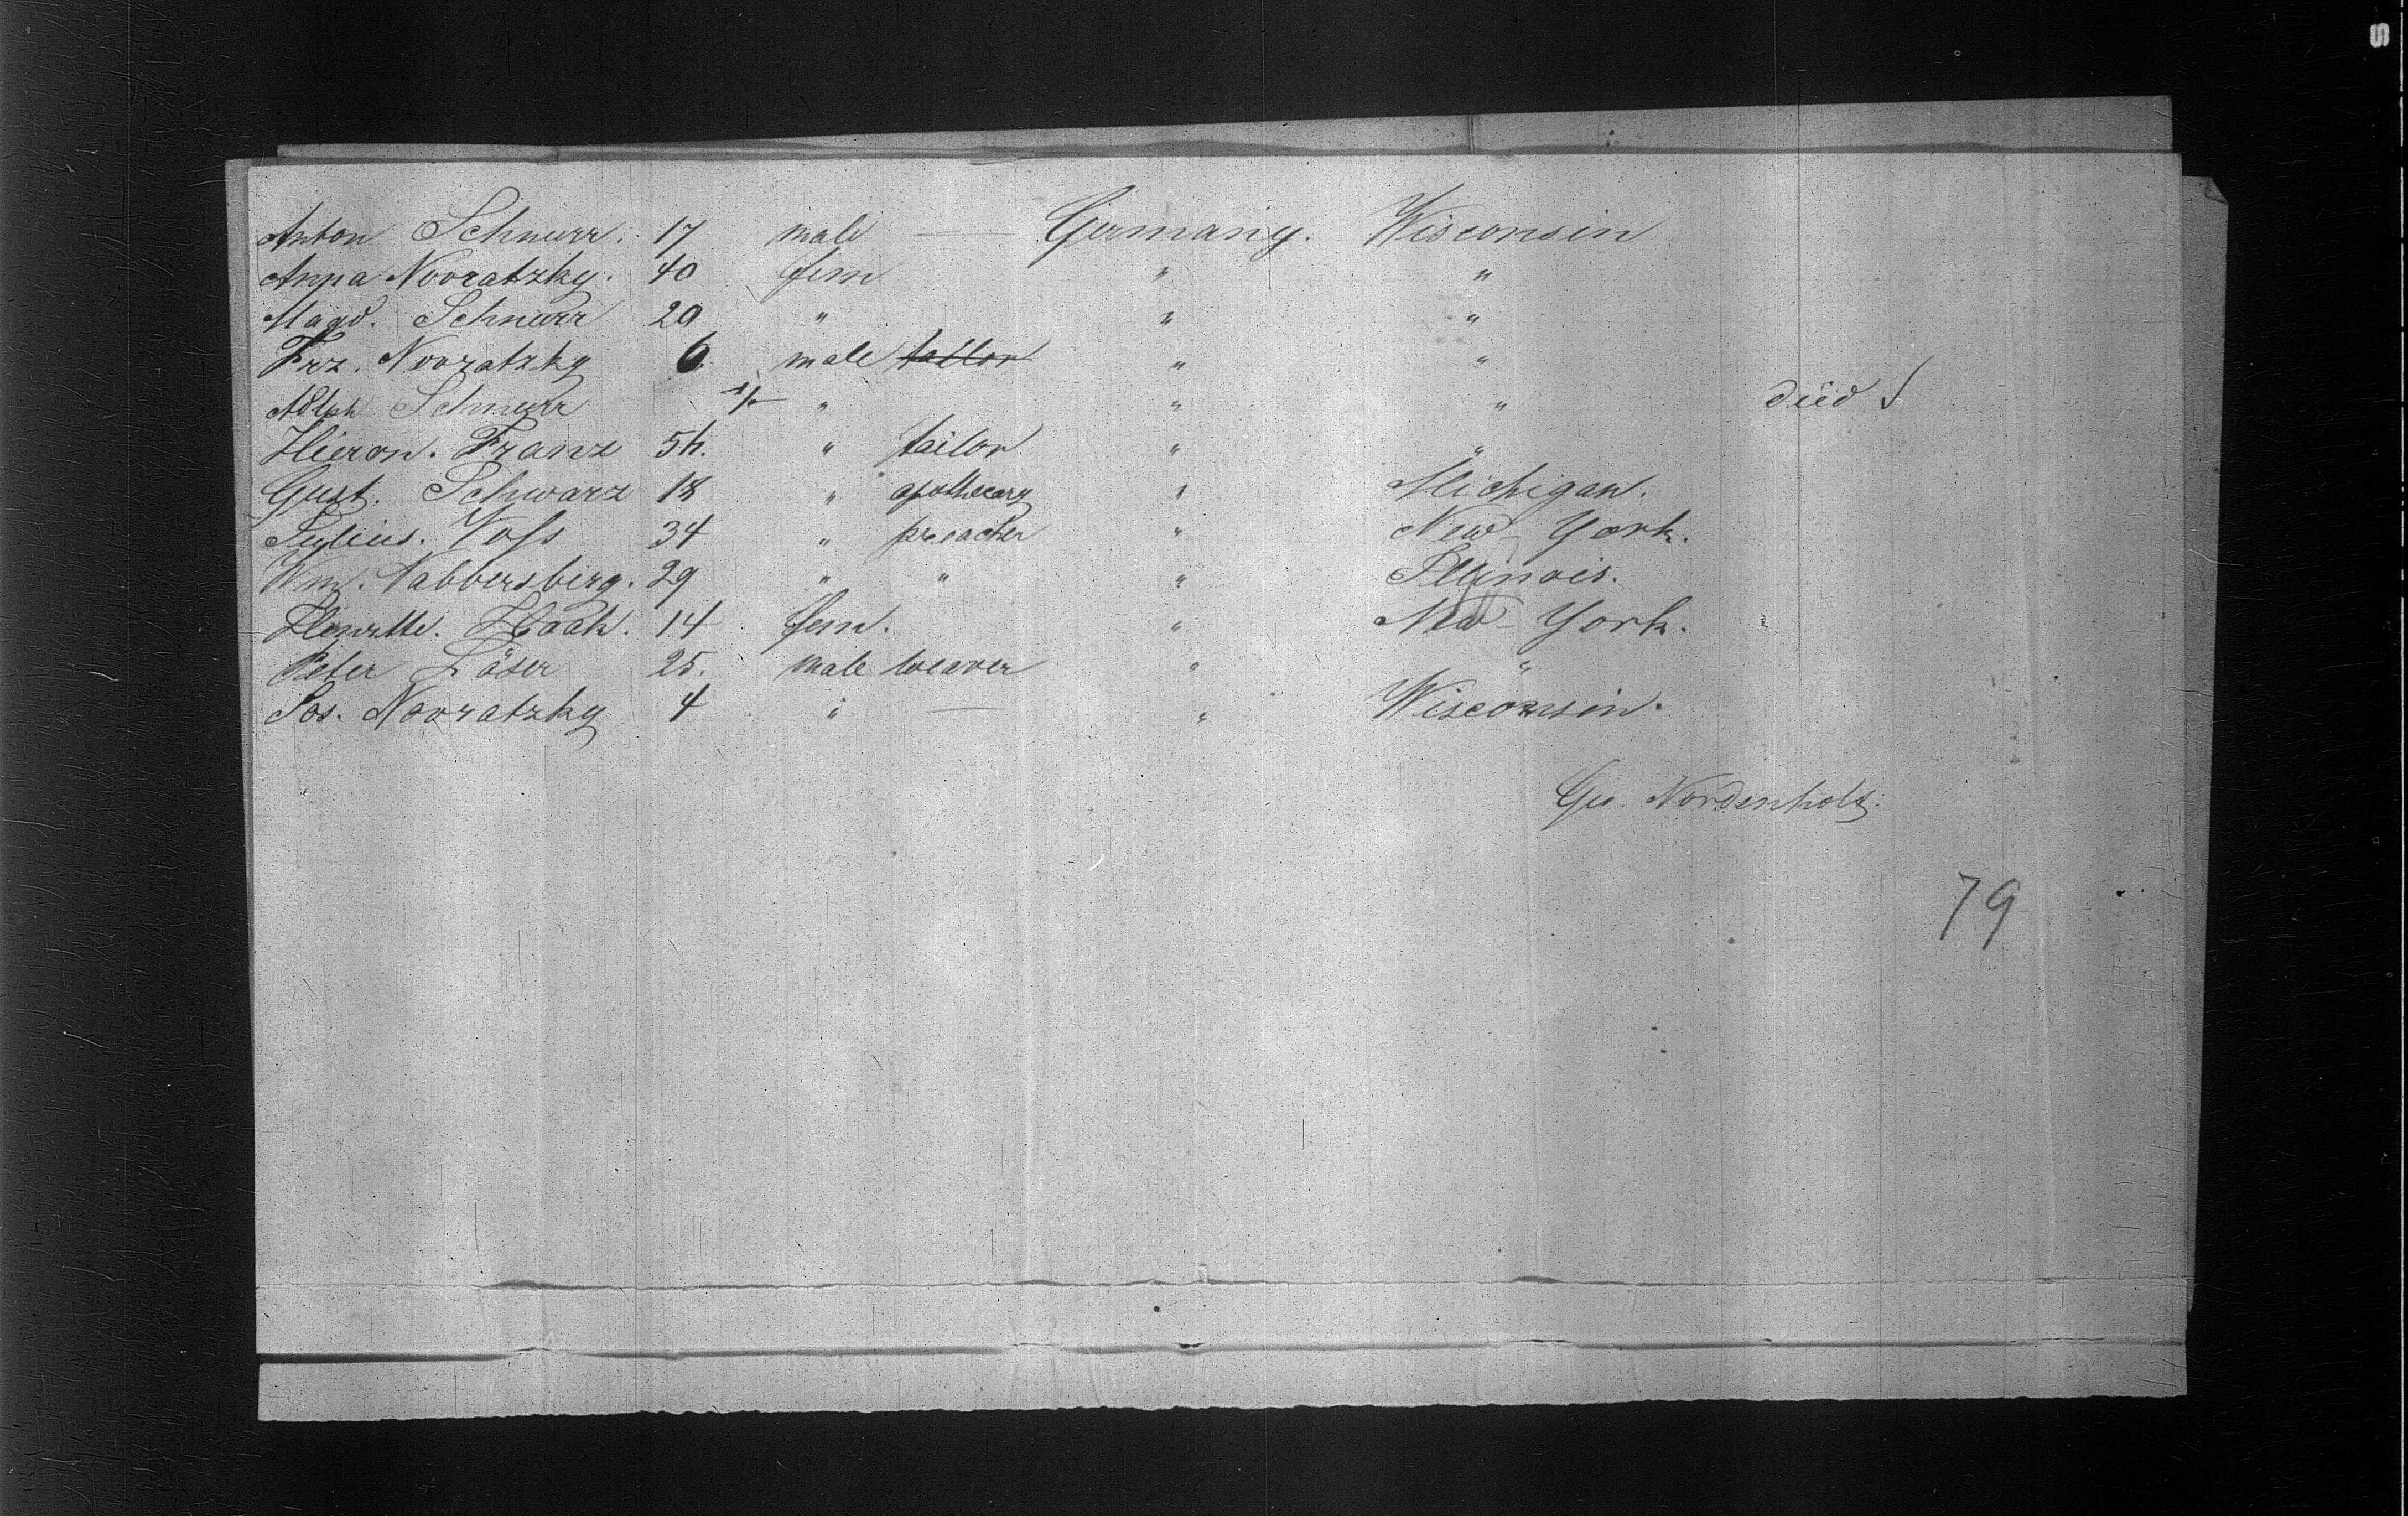 Anton Schnurr. 17 male — Germany. Wisconsin
Anna Novratzky. 40 fem " "
Magd. Schnurr 20 " " "
Frz. Novratzky 6 male tailor " "
Adlph Schnurr " " " died
Hieron. Franz 54. " tailor " "
Gust. Schwarz 18 " apothecary " Michigan.
Julius. Voss 34 " preacher " New-York.
Wm. Nabbersberg. 29 " " " Illinois.
Henrtte. Haak. 14 fem. " New-York.
Peter Löser 25. male weaver " "
Jos. Novratzky 4 " — " Wisconsin.
Ges. Nordenholz.
79